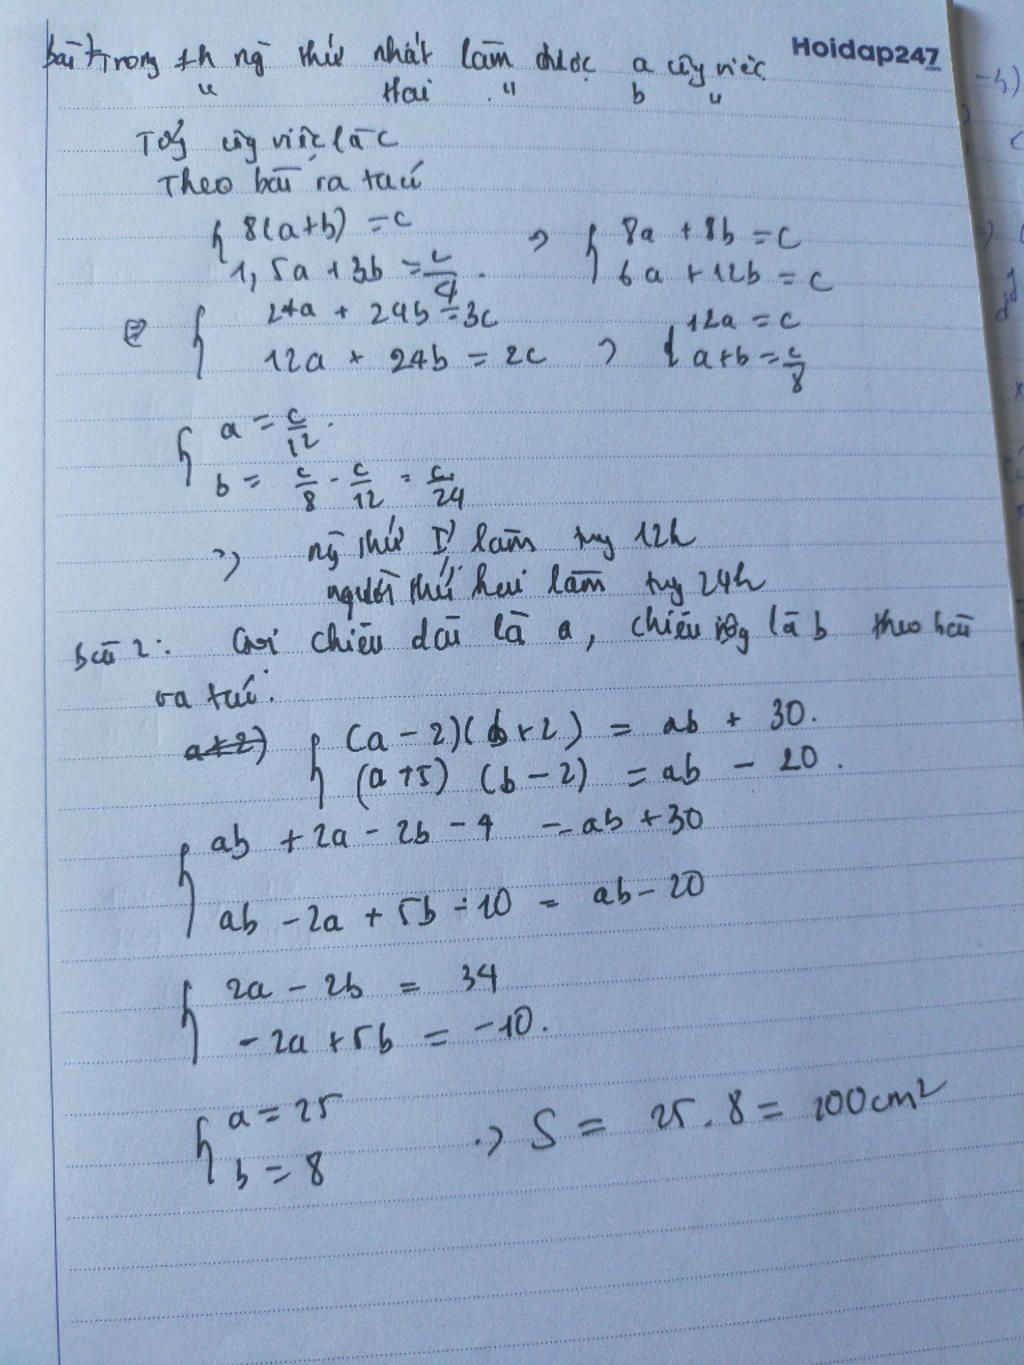 Hoidap247
bài 1 trong 1h ng thứ nhất làm được a công việc
" Hai " b "
Tổng công việc là c
Theo bài ra ta có
{ 8(a+b) = c => { 8a + 8b = c
1,5a + 3b = c/4 . 6a + 12b = c
<=> { 24a + 24b = 3c 12a = c
12a + 24b = 2c => { a+b = c/8
{ a = c/12 .
b = c/8 - c/12 = c/24
=> ng thứ I làm trong 12h
người thứ hai làm trong 24h
bài 2: Gọi chiều dài là a, chiều rộng là b theo bài
ra ta có:
{ (a - 2)(b + 2) = ab + 30.
(a + 5) (b - 2) = ab - 20 .
{ ab + 2a - 2b - 4 = ab + 30
ab - 2a + 5b - 10 = ab - 20
{ 2a - 2b = 34
- 2a + 5b = -10.
{ a = 25 => S = 25 . 8 = 200cm²
b = 8